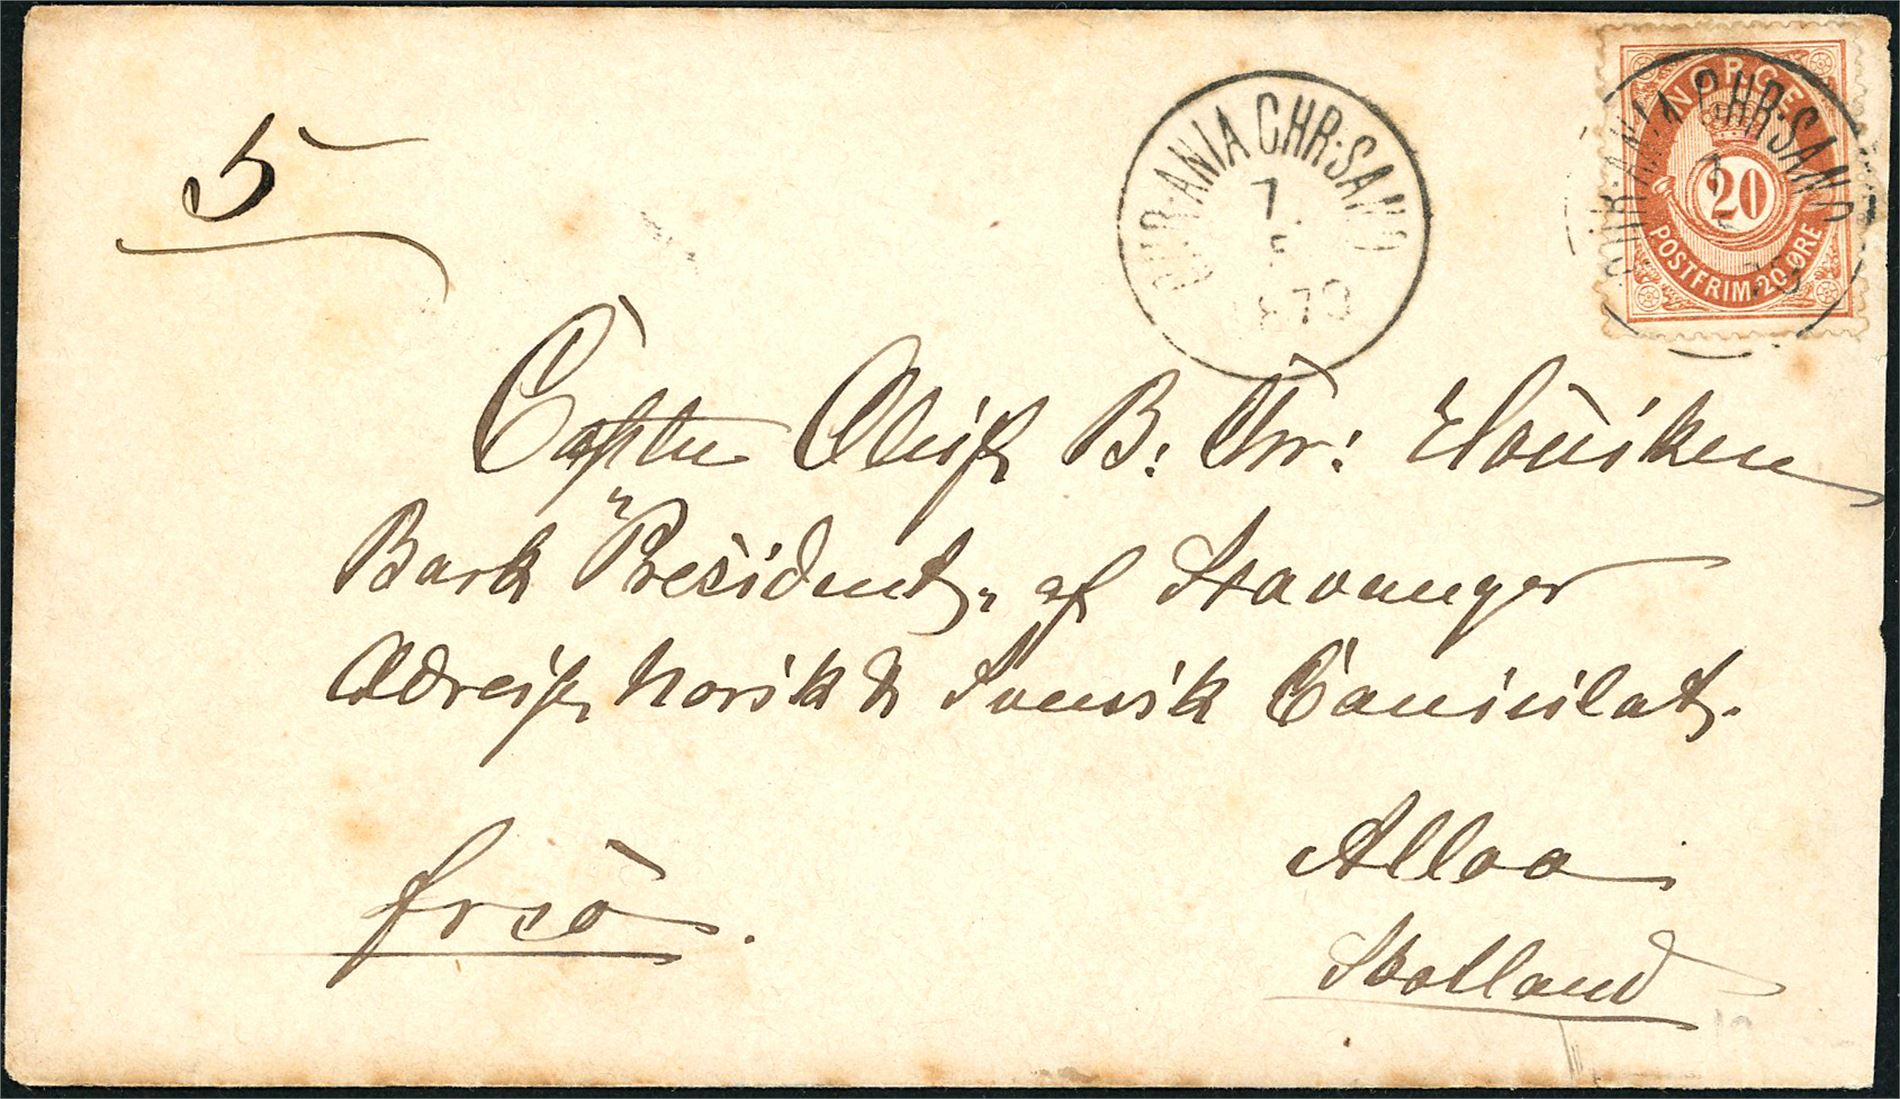 5
CHR:ANIA CHR:SAND
7
5
1879
NORGE
20
POSTFRIM. 20 ØRE
CHR:ANIA CHR:SAND
7
Captn Oluf B:
Bark "President" af Stavanger
Adress Norsk & Svensk Consulat.
frco.
Alloa
Skotland